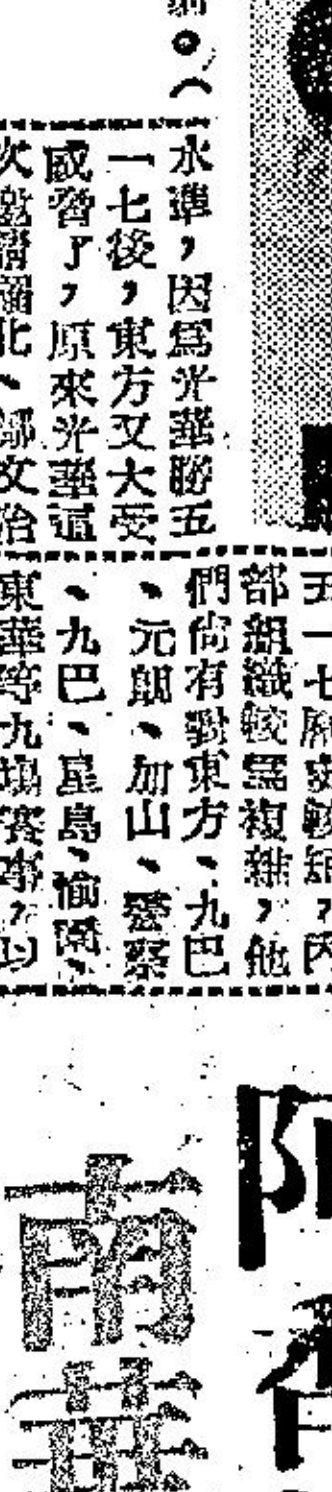 。(
水準，因爲光華勝五
一七後，東方又大受
威脅了，原來光華這
次邀請
北、
文治
五一七
部組織較爲複雜，他
們尙有對東方、九巴
、元朗、加山、警察
、九巴、星島、愉園、
東華等九場賽事，以
南華
香